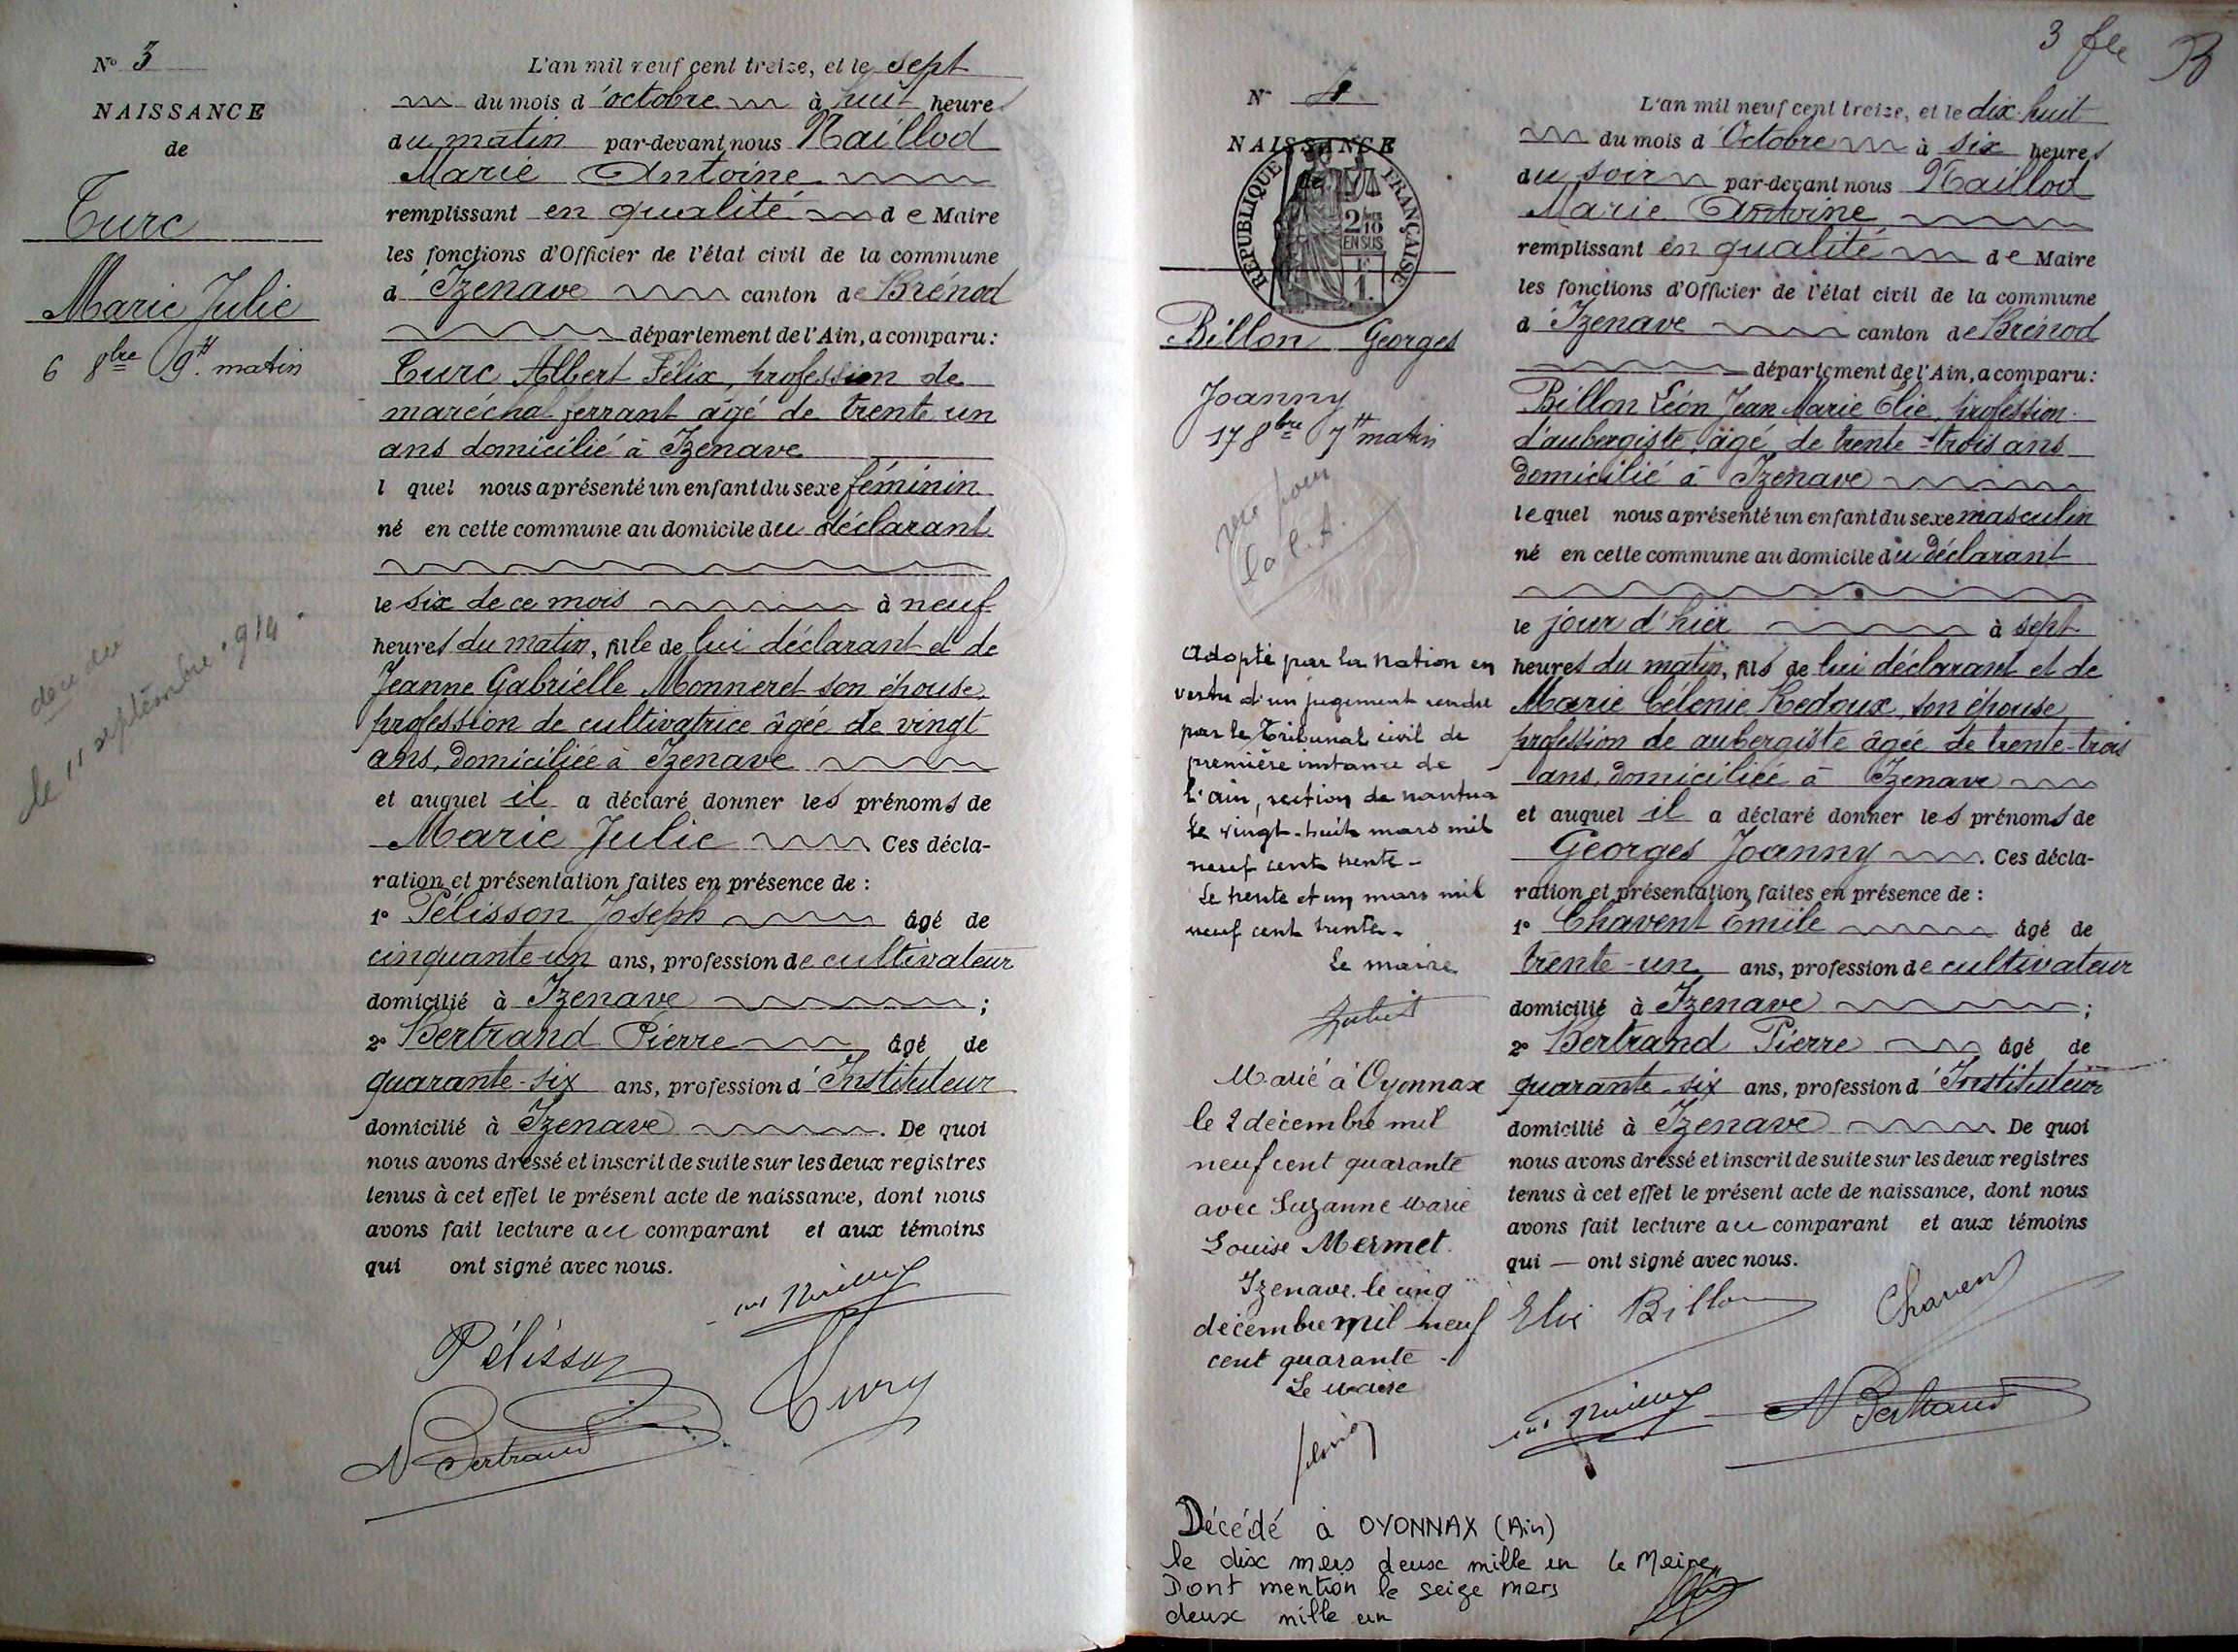 N° 3
NAISSANCE
de
Turc
Marie Julie
6 8bre 9h matin
le 11 septembre 1914
L'an mil neuf cent treize, et le sept
du mois d'octobre à huit heures
du matin par-devant nous Naillod
Marie Antoine
remplissant en qualité de Maire
les fonctions d'Officier de l'état civil de la commune
d'Izenave canton de Brénod
département de l'Ain, a comparu:
Turc Albert Félix, profession de
maréchal ferrant âgé de trente un
ans domicilié à Izenave
l quel nous a présenté un enfant du sexe féminin
né en cette commune au domicile du déclarant
le six de ce mois à neuf
heures du matin, fille de lui déclarant et de
Jeanne Gabrielle Monneret son épouse
profession de cultivatrice âgée de vingt
ans, domiciliée à Izenave
et auquel il a déclaré donner les prénoms de
Marie Julie Ces décla-
ration et présentation faites en présence de :
1° Pélisson Joseph âgé de
cinquante un ans, profession de cultivateur
domicilié à Izenave ;
2° Bertrand Pierre âgé de
quarante-six ans, profession d'Instituteur
domicilié à Izenave . De quoi
nous avons dressé et inscrit de suite sur les deux registres
tenus à cet effet le présent acte de naissance, dont nous
avons fait lecture au comparant et aux témoins
qui ont signé avec nous.
Pélisson
Turc
N Bertrand
3 fle B
N° 4
NAISSANCE
de
RÉPUBLIQUE FRANÇAISE
2/10
EN SUS
F
1.
Billon Georges
Joanny
17 8bre 7h matin
Adopté par la Nation en
vertu d'un jugement rendu
par le Tribunal civil de
première instance de
l'ain, section de nantua
le vingt-huit mars mil
neuf cent trente -
Le trente et un mars mil
neuf cent trente -
Le maire
Marié à Oyonnax
le 2 décembre mil
neuf cent quarante
avec Suzanne Marie
Louise Mermet.
Izenave, le cinq
décembre mil neuf
cent quarante -
Le maire
Décédé à OYONNAX (Ain)
le dix mars deux mille un Le Maire
Dont mention le seize mars
deux mille un
L'an mil neuf cent treize, et le dix-huit
du mois d'Octobre à six heures
du soir par-devant nous Naillod
Marie Antoine
remplissant en qualité de Maire
les fonctions d'Officier de l'état civil de la commune
d'Izenave canton de Brénod
département de l'Ain, a comparu:
Billon Léon Jean Marie Elie, profession
d'aubergiste, âgé de trente-trois ans
domicilié à Izenave
lequel nous a présenté un enfant du sexe masculin
né en cette commune au domicile du déclarant
le jour d'hier à sept
heures du matin, fils de lui déclarant et de
Marie Célonie Redoux, son épouse,
profession de aubergiste âgée de trente-trois
ans, domiciliée à Izenave
et auquel il a déclaré donner les prénoms de
Georges Joanny . Ces décla-
ration et présentation faites en présence de :
1° Chavent Emile âgé de
trente-un ans, profession de cultivateur
domicilié à Izenave ;
2° Bertrand Pierre âgé de
quarante-six ans, profession d'Instituteur
domicilié à Izenave De quoi
nous avons dressé et inscrit de suite sur les deux registres
tenus à cet effet le présent acte de naissance, dont nous
avons fait lecture au comparant et aux témoins
qui — ont signé avec nous.
Elie Billon Chavent
N Bertrand